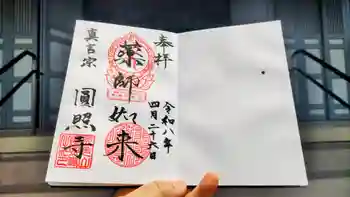 奉拝
令和八年
四月二十六日
薬師如来
真言宗
圓照寺